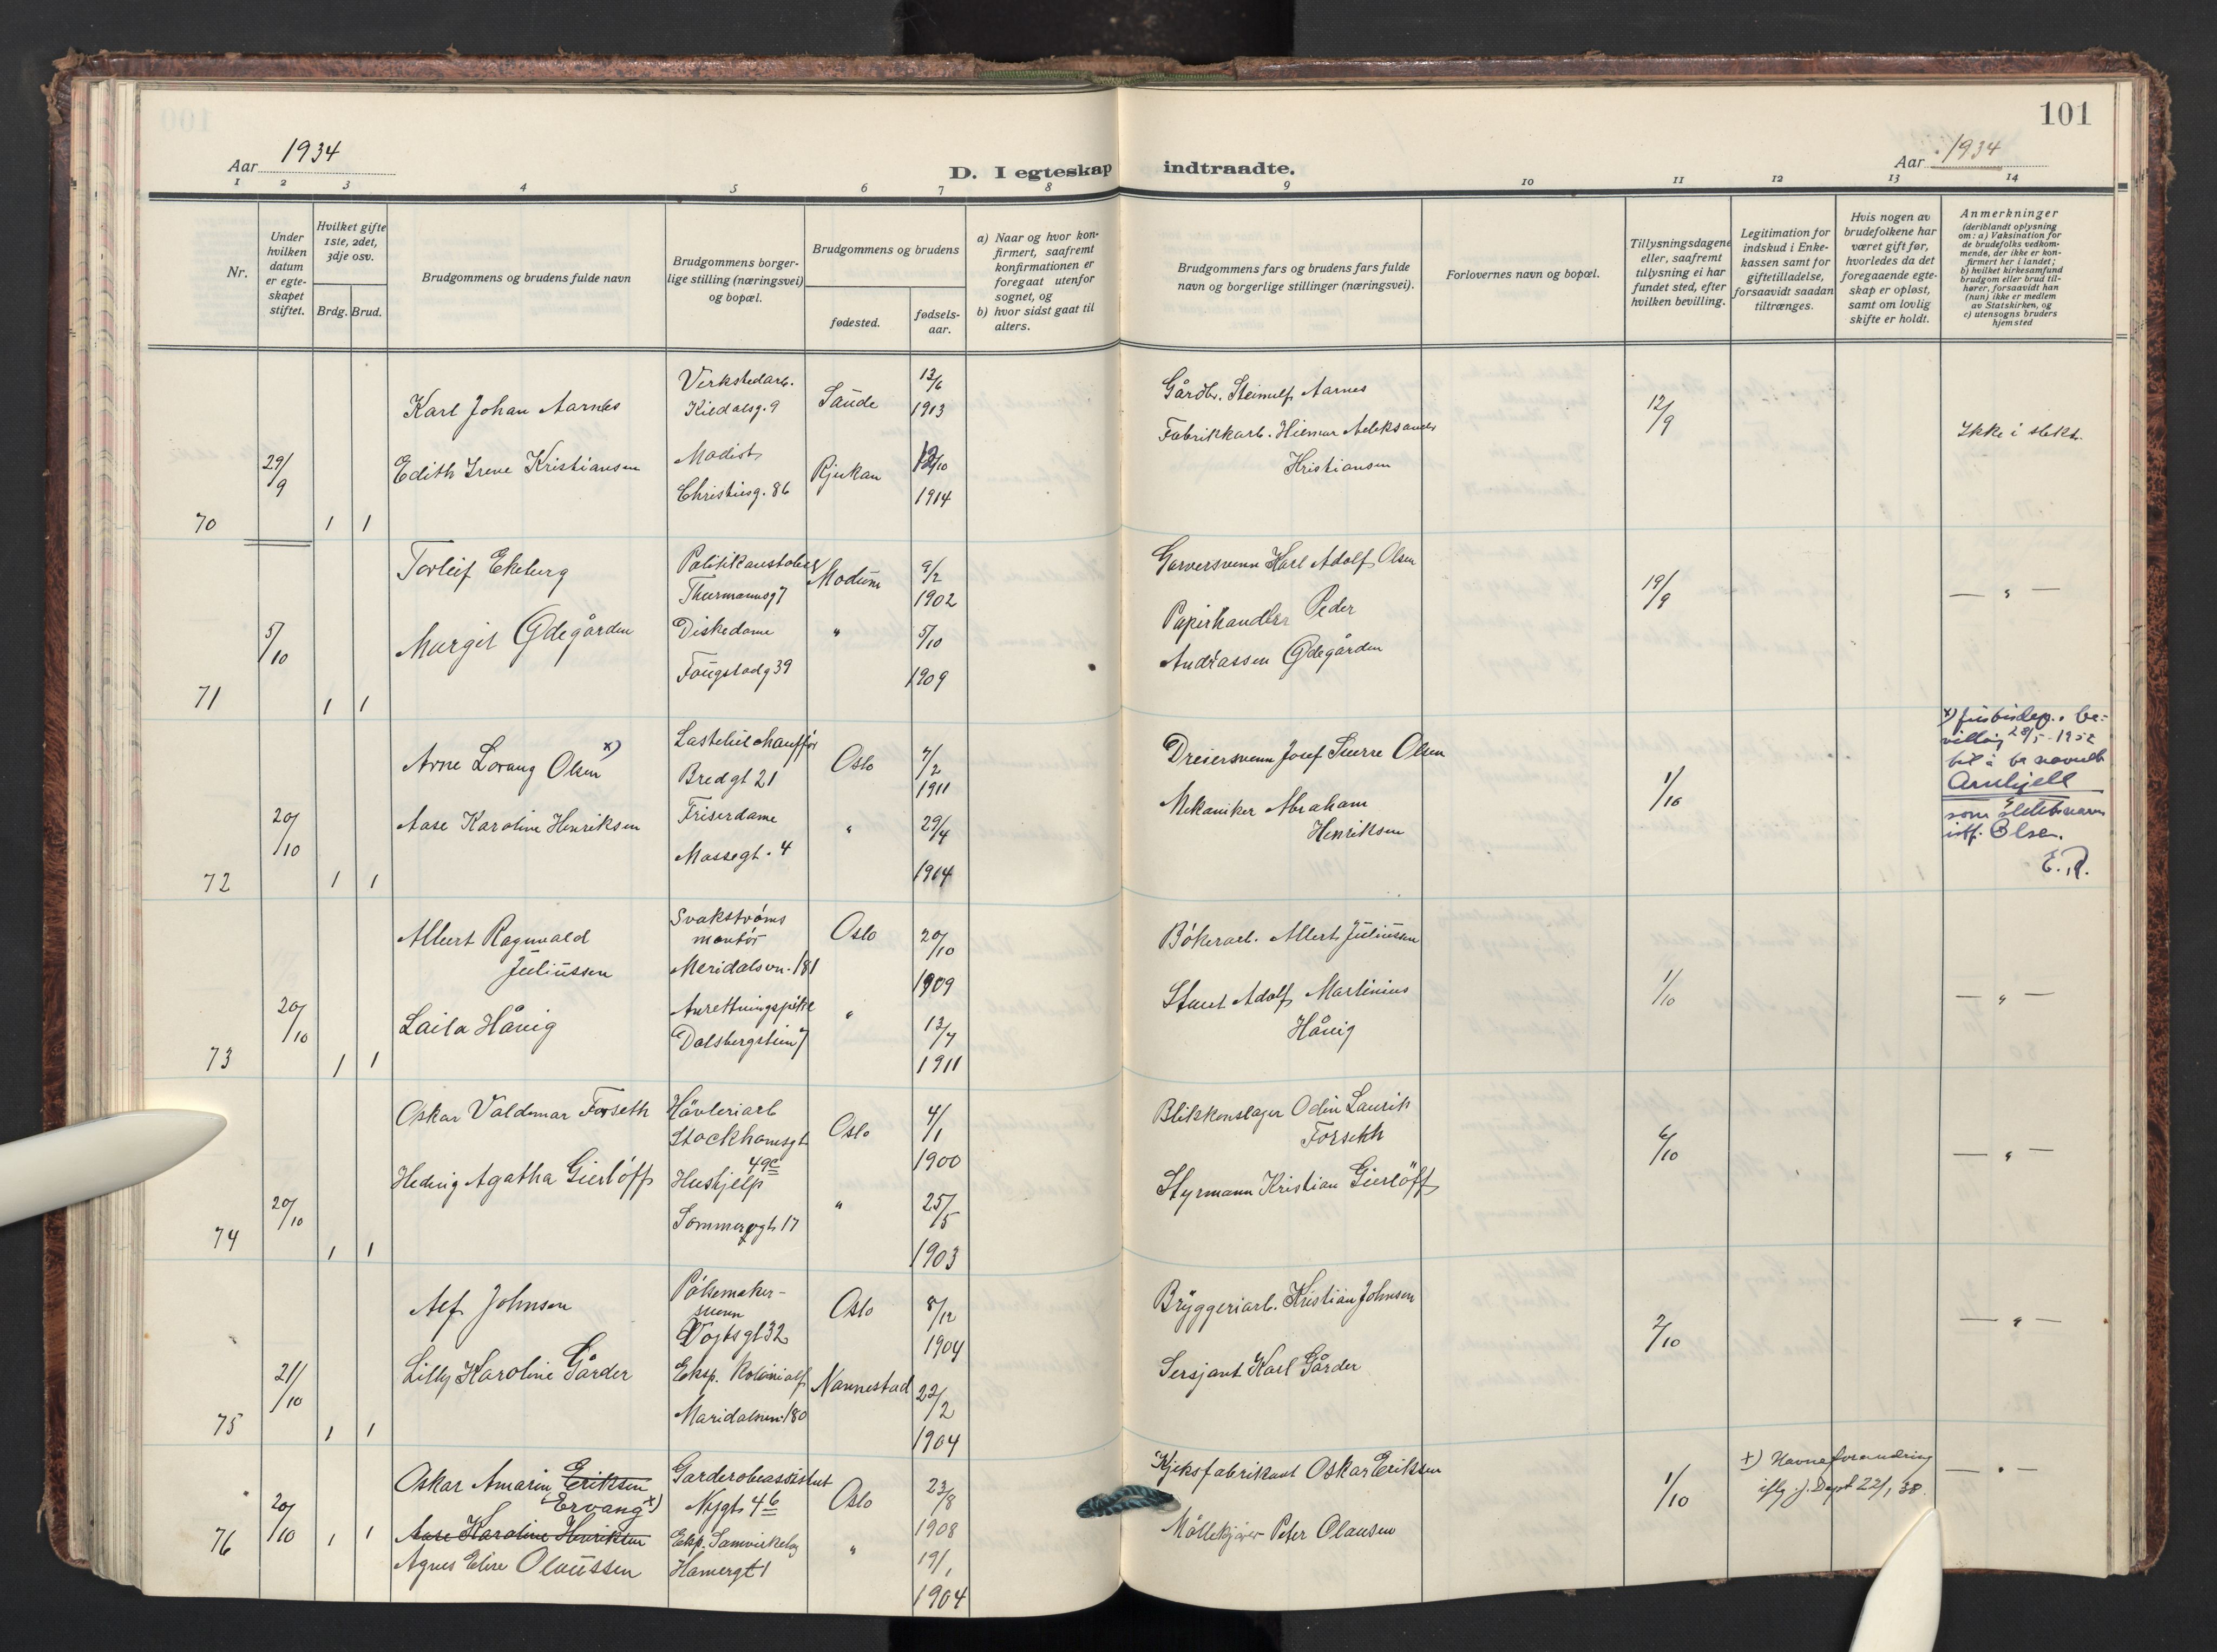 101
Aar 1934
D. I egteskap indtraadte.
Aar 1934
1 2 3 4 5 6 7 8 9 10 11 12 13 14
Nr.
Under hvilken datum er egteskapet stiftet.
Hvilket gifte 1ste, 2det, 3dje osv.
Brdg. Brud.
Brudgommens og brudens fulde navn
Brudgommens borgerlige stilling (næringsvei) og bopæl.
Brudgommens og brudens
fødested.
fødselsaar.
a) Naar og hvor konfirmert, saafremt konfirmationen er foregaat utenfor sognet, og
b) hvor sidst gaat til alters.
Brudgommens fars og brudens fars fulde navn og borgerlige stillinger (næringsvei).
Forlovernes navn og bopæl.
Tillysningsdagene eller, saafremt tillysning ei har fundet sted, efter hvilken bevilling.
Legitimation for indskud i Enkekassen samt for giftetilladelse, forsaavidt saadan tiltrænges.
Hvis nogen av brudefolkene har været gift før, hvorledes da det foregaaende egteskap er opløst, samt om lovlig skifte er holdt.
Anmerkninger (deriblandt oplysning om: a) Vaksination for de brudefolks vedkommende, der ikke er konfirmert her i landet; b) hvilket kirkesamfund brudgom eller brud tilhører, forsaavidt han (hun) ikke er medlem av Statskirken, og c) utensogns bruders hjemsted
70 29/9 1 1
Karl Johan Aarnes Verkstedarb. Kildalsg. 9 Saude 13/6 1913
Gårdbr. Steinulf Aarnes 12/9 Ikke i slekt.
Edith Irene Kristiansen Modist Christiesg. 86 Rjukan 1914
Fabrikkarb. Hilmar Aleksander Kristiansen
71 5/10 1 1
Torleif Ekeberg Thurmannsg 7 Modum 9/2 1902
Garversvenn Karl Adolf Olsen 19/9 — " —
Margit Ødegården Diskedame Fougstadg 39 " 5/10 1909
Papirhandler Peder Andreassen Ødegården
72 20/10 1 1
Arne Lorang Olsen x) Lastebilchauffør Bredgt 21 Oslo 7/2 1911
Dreiersvenn Josef Sverre Olsen 1/10
Aase Karoline Henriksen Friserdame Mossegt. 4 " 29/4 1914
Mekaniker Abraham Henriksen
x) Justisdep. bevilling 28/5-1952 til å ta navnet
Arnkjell
som slektsnavn istf. Olsen.
E.R.
73 20/10 1 1
Albert Ragnvald Juliussen Svakstrøms montør Meridalsvn. 181 Oslo 20/10 1909
Bøkerarb. Albert Juliussen 1/10 — " —
Laila Hånig Anrettningspike Dalsbergstien 7 " 13/7 1911
Stuert Adolf Martinius Hånig
74 20/10 1 1
Oskar Valdemar Forseth Høvleriarb Stockhomsgt 49c Oslo 4/1 1900
Blikkenslager Odin Laurik Forseth 6/10 — " —
Hedvig Agatha Gierløff Hushjelp Sommerogt. 17 " 25/5 1903
Styrmann Kristian Gierløff
75 21/10 1 1
Alf Johnsen Pølsemakersvenn Vogtsgt 32 Oslo 8/12 1904
Bryggeriarb. Kristian Johnsen 2/10 — " —
Lilly Karoline Gårder Eksp. Kolonialf Maridalsvn. 180 Nannestad 22/2 1904
Sersjant Karl Gårder
76 20/10 1 1
Oskar Amarin Eriksen Ervang x) Garderobeassistent Nygt. 4b Oslo 23/8 1908
Kjeksfabrikant Oskar Eriksen 1/10
x) Navneforandring iflg. J. Dept 22/1 38. — " —
Aase Karoline Henriksen
Agnes Elise Olaussen Eksp. Samvirkelag Hamergt 1 " 19/1 1904
Møllekjører Peter Olausen